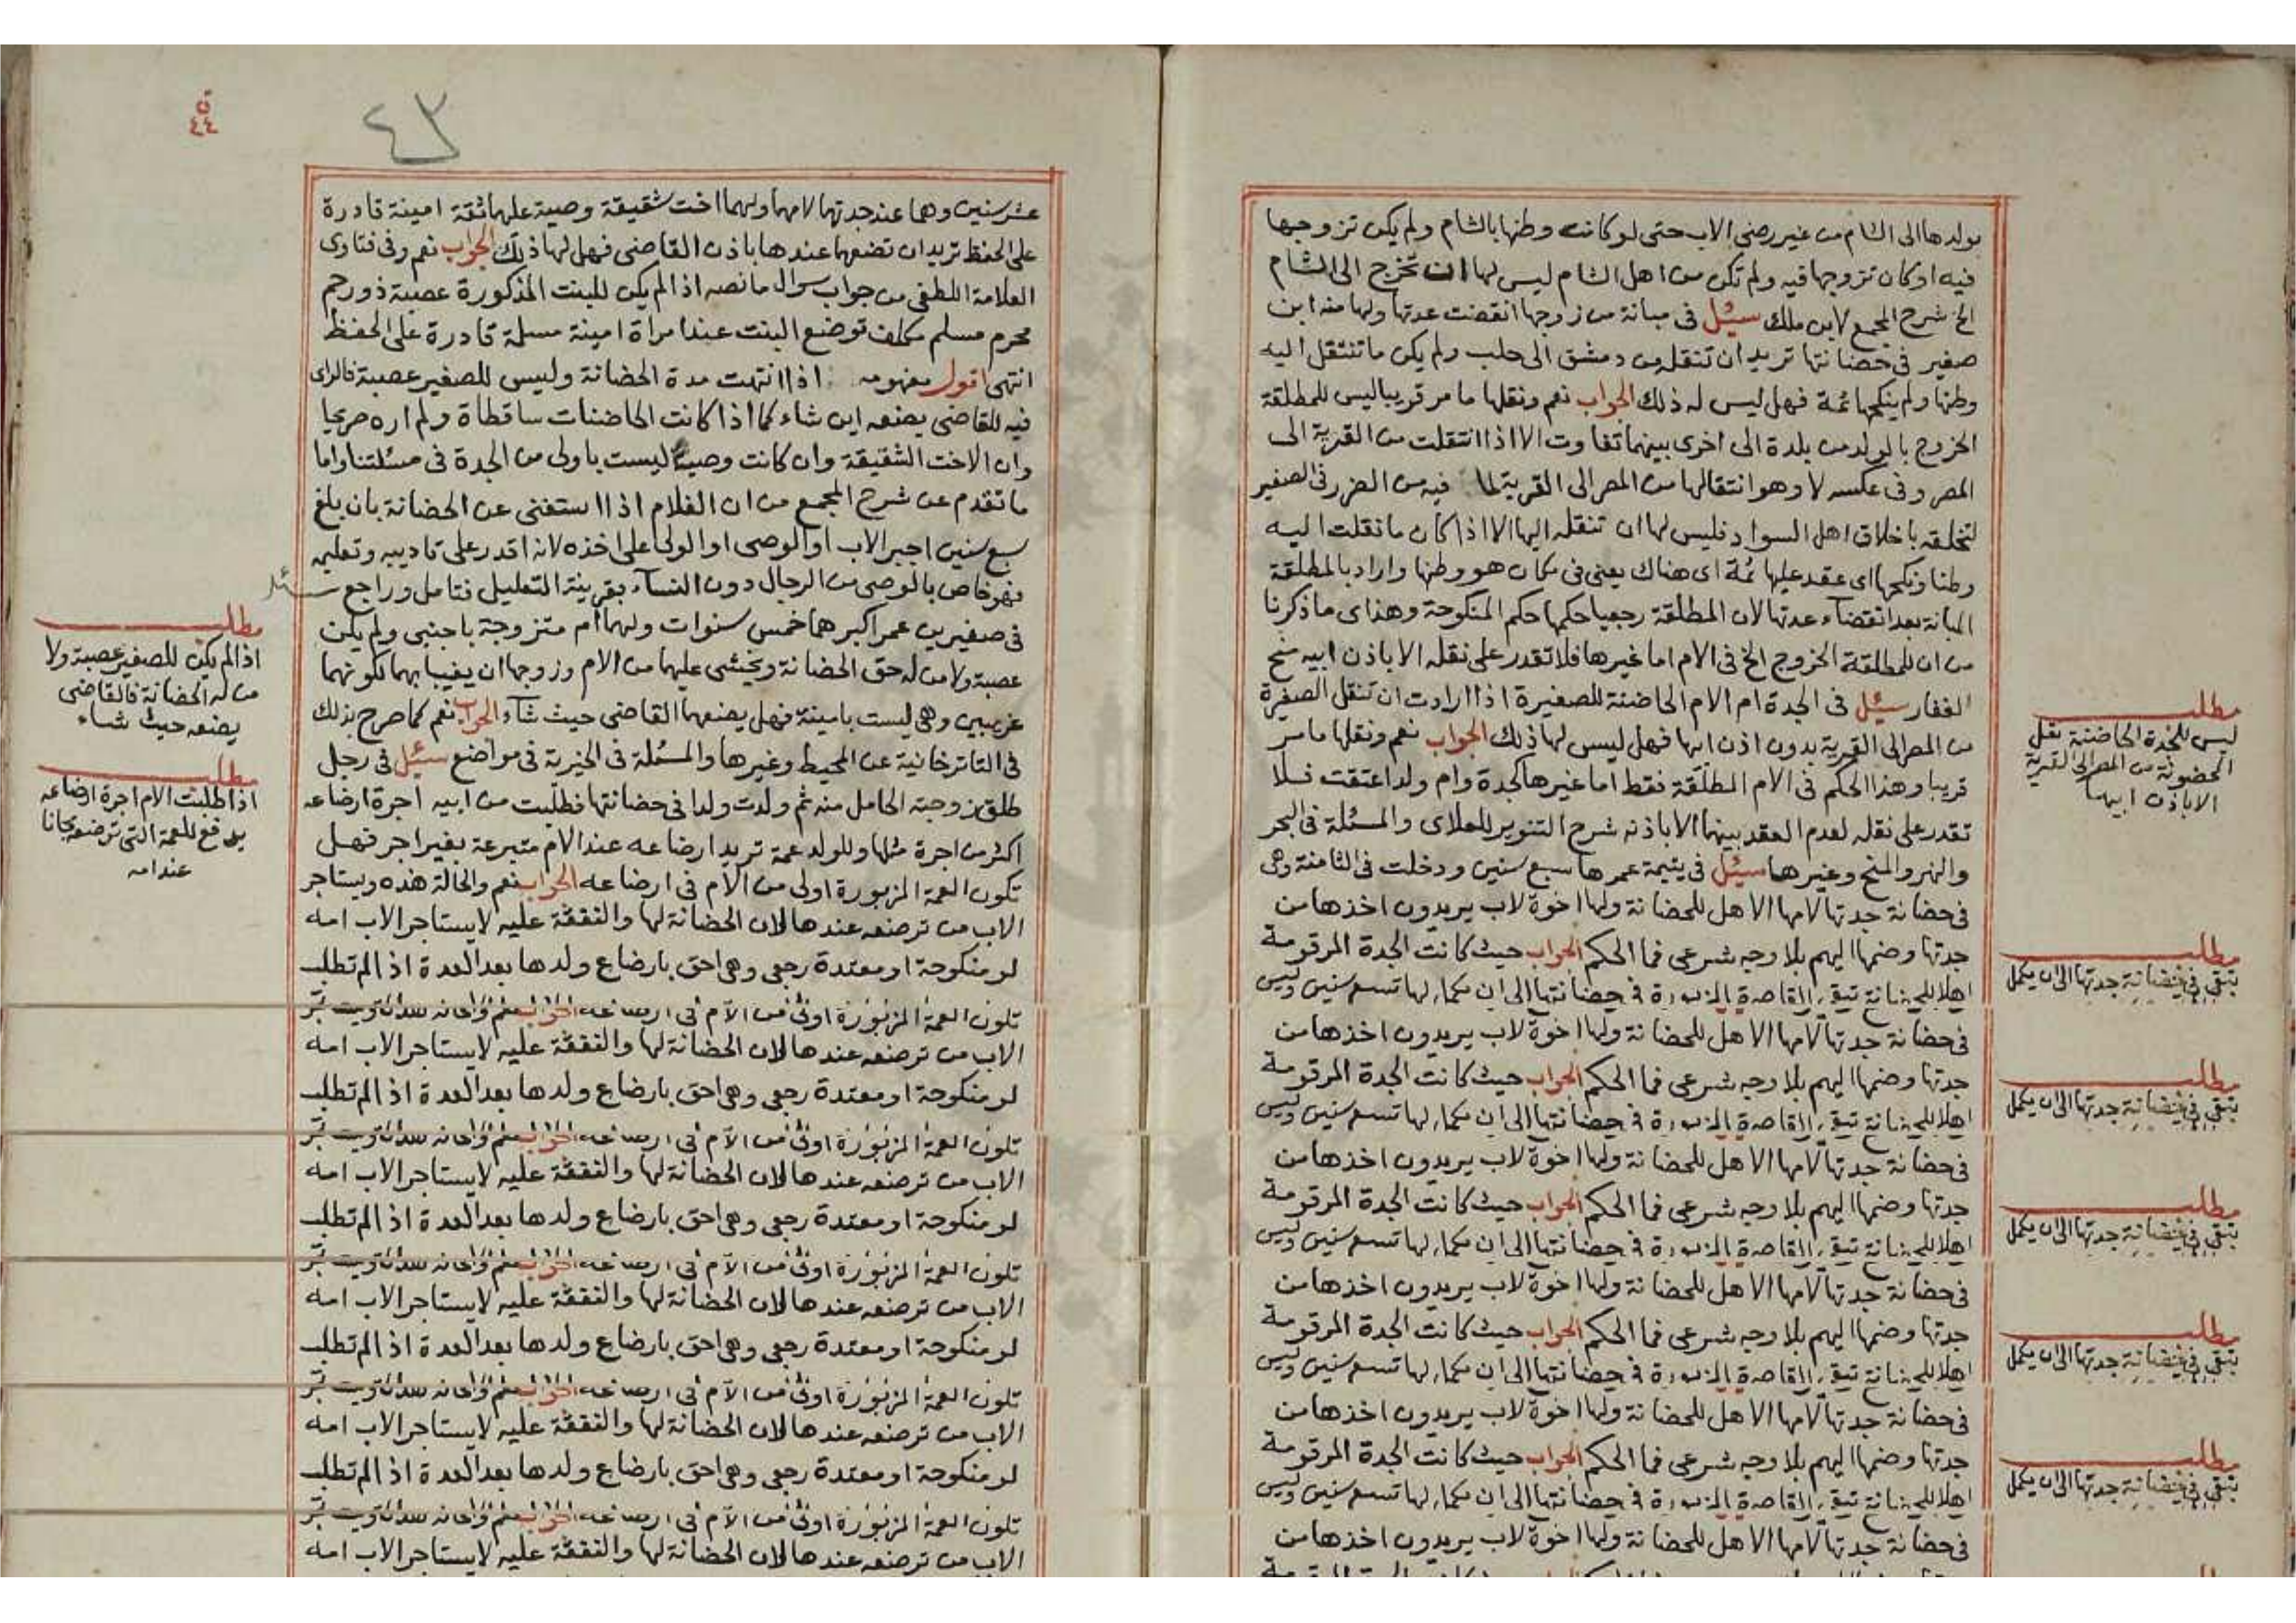 بولدها الى الشام من غير رضى الاب حتى لو كانت وطنها بالشام ولم يكن تزوجها
فيه او كان تزوجها فيه ولم تكن من اهل الشام ليس لها ان تخرج الى الشام
الخ شرح المجمع لابن ملك سئل فى مبانة من زوجها انقضت عدتها ولها منه ابن
صغير فى حضانتها تريد ان تنقله من دمشق الى حلب ولم يكن ما تنتقل اليه
وطنها ولم ينكحها ثمة فهل ليس له ذلك الجواب نعم ونقلها ما مر قريبا ليس للمطلقة
الخروج بالولد من بلدة الى اخرى بينهما تفاوت الا اذا انتقلت من القرية الى
المصر وفى عكسه لا وهو انتقالها من المصر الى القرية لما فيه من الضرر فى الصغير
لتخلقه باخلاق اهل السواد فليس لها ان تنقله اليها الا اذا كان ما نقلت اليه
وطنا ونكحها اى عقد عليها ثمة اى هناك يعنى فى مكان هو وطنها واراد بالمطلقة
المبانة بعد انقضاء عدتها لان المطلقة رجعيا حكمها حكم المنكوحة وهذا اى ما ذكرنا
من ان للمطلقة الخروج الخ فى الام اما غيرها فلا تقدر على نقله الا باذن ابيه منح
الغفار سئل فى الجدة ام الام الحاضنة للصغيرة اذا ارادت ان تنقل الصغيرة
من المصر الى القرية بدون اذن ابيها فهل ليس لها ذلك الجواب نعم ونقلها ما مر
قريبا وهذا الحكم فى الام المطلقة فقط اما غيرها كجدة وام ولد اعتقت فلا
تقدر على نقله لعدم العقد بينهما الا باذنه شرح التنوير للعلاى والمسئلة فى البحر
والنهر والمنح وغيرها سئل فى يتيمة عمرها سبع سنين ودخلت فى الثامنة وهى
فى حضانة جدتها لامها الاهل للحضانة ولها اخوة لاب يريدون اخذها من
جدتها وضمها اليهم بلا وجه شرعى فما الحكم الجواب حيث كانت الجدة المرقومة
اهلا للحضانة تبقى القاصرة المزبورة فى حضانتها الى ان يكمل لها تسع سنين وليس
فى حضانة جدتها لامها الاهل للحضانة ولها اخوة لاب يريدون اخذها من
جدتها وضمها اليهم بلا وجه شرعى فما الحكم الجواب حيث كانت الجدة المرقومة
اهلا للحضانة تبقى القاصرة المزبورة فى حضانتها الى ان يكمل لها تسع سنين وليس
فى حضانة جدتها لامها الاهل للحضانة ولها اخوة لاب يريدون اخذها من
جدتها وضمها اليهم بلا وجه شرعى فما الحكم الجواب حيث كانت الجدة المرقومة
اهلا للحضانة تبقى القاصرة المزبورة فى حضانتها الى ان يكمل لها تسع سنين وليس
فى حضانة جدتها لامها الاهل للحضانة ولها اخوة لاب يريدون اخذها من
جدتها وضمها اليهم بلا وجه شرعى فما الحكم الجواب حيث كانت الجدة المرقومة
اهلا للحضانة تبقى القاصرة المزبورة فى حضانتها الى ان يكمل لها تسع سنين وليس
فى حضانة جدتها لامها الاهل للحضانة ولها اخوة لاب يريدون اخذها من
جدتها وضمها اليهم بلا وجه شرعى فما الحكم الجواب حيث كانت الجدة المرقومة
اهلا للحضانة تبقى القاصرة المزبورة فى حضانتها الى ان يكمل لها تسع سنين وليس
فى حضانة جدتها لامها الاهل للحضانة ولها اخوة لاب يريدون اخذها من
مطلب
ليس للجدة الحاضنة نقل
المحضونة من المصر الى القرية
الا باذن ابيها
مطلب
تبقى فى حضانة جدتها الى ان يكمل
مطلب
تبقى فى حضانة جدتها الى ان يكمل
مطلب
تبقى فى حضانة جدتها الى ان يكمل
مطلب
تبقى فى حضانة جدتها الى ان يكمل
مطلب
تبقى فى حضانة جدتها الى ان يكمل
٤٣
٤٤
عشر سنين وهما عند جدتهما لامهما ولهما اخت شقيقة وصية عليهما ثقة امينة قادرة
على الحفظ تريد ان تضعهما عندها باذن القاضى فهل لها ذلك الجواب نعم وفى فتاوى
العلامة اللطفى من جواب سوال ما نصه اذا لم يكن للبنت المذكورة عصبة ذو رحم
محرم مسلم مكلف توضع البنت عند امراة امينة مسلمة قادرة على الحفظ
انتهى اقول مفهومه اذا انتهت مدة الحضانة وليس للصغير عصبة فالراى
فيه للقاضى يضعه اين شاء كما اذا كانت الحاضنات ساقطاة ولم اره صريحا
وان الاخت الشقيقة وان كانت وصية ليست باولى من الجدة فى مسئلتنا واما
ما تقدم عن شرح المجمع من ان الغلام اذا استغنى عن الحضانة بان بلغ
سبع سنين اجبر الاب او الوصى او الولى على اخذه لانه اقدر على تاديبه وتعليمه
فهو خاص بالوصى من الرجال دون النساء بقرينة التعليل فتامل وراجع سئل
فى صغيرين عمر اكبرهما خمس سنوات ولهما ام متزوجة باجنبى ولم يكن
عصبة ولا من له حق الحضانة ويخشى عليهما من الام وزوجها ان يغيبا بهما لكونهما
غريبين وهى ليست بامينة فهل يضعهما القاضى حيث شاء الجواب نعم كما صرح بذلك
فى التاترخانية عن المحيط وغيرها والمسئلة فى الخيرية فى مواضع سئل فى رجل
طلق زوجته الحامل منه ثم ولدت ولدا فى حضانتها فطلبت من ابيه اجرة ارضاعه
اكثر من اجرة مثلها وللولد عمة تريد ارضاعه عند الام متبرعة بغير اجر فهل
تكون العمة المزبورة اولى من الام فى ارضاعه الجواب نعم والحالة هذه ويستاجر
الاب من ترضعه عندها لان الحضانة لها والنفقة عليه لا يستاجر الاب امه
لو منكوحة او معتدة رجعى وهى احق بارضاع ولدها بعد العدة اذا لم تطلب
تكون العمة المزبورة اولى من الام فى ارضاعه الجواب نعم والحالة هذه ويستاجر
الاب من ترضعه عندها لان الحضانة لها والنفقة عليه لا يستاجر الاب امه
لو منكوحة او معتدة رجعى وهى احق بارضاع ولدها بعد العدة اذا لم تطلب
تكون العمة المزبورة اولى من الام فى ارضاعه الجواب نعم والحالة هذه ويستاجر
الاب من ترضعه عندها لان الحضانة لها والنفقة عليه لا يستاجر الاب امه
لو منكوحة او معتدة رجعى وهى احق بارضاع ولدها بعد العدة اذا لم تطلب
تكون العمة المزبورة اولى من الام فى ارضاعه الجواب نعم والحالة هذه ويستاجر
الاب من ترضعه عندها لان الحضانة لها والنفقة عليه لا يستاجر الاب امه
لو منكوحة او معتدة رجعى وهى احق بارضاع ولدها بعد العدة اذا لم تطلب
تكون العمة المزبورة اولى من الام فى ارضاعه الجواب نعم والحالة هذه ويستاجر
الاب من ترضعه عندها لان الحضانة لها والنفقة عليه لا يستاجر الاب امه
لو منكوحة او معتدة رجعى وهى احق بارضاع ولدها بعد العدة اذا لم تطلب
تكون العمة المزبورة اولى من الام فى ارضاعه الجواب نعم والحالة هذه ويستاجر
الاب من ترضعه عندها لان الحضانة لها والنفقة عليه لا يستاجر الاب امه
مطلب
اذا لم يكن للصغير عصبة ولا
من له الحضانة فالقاضى
يضعه حيث شاء
مطلب
اذا طلبت الام اجرة ارضاعه
يدفع للعمة التى ترضعه مجانا
عند امه